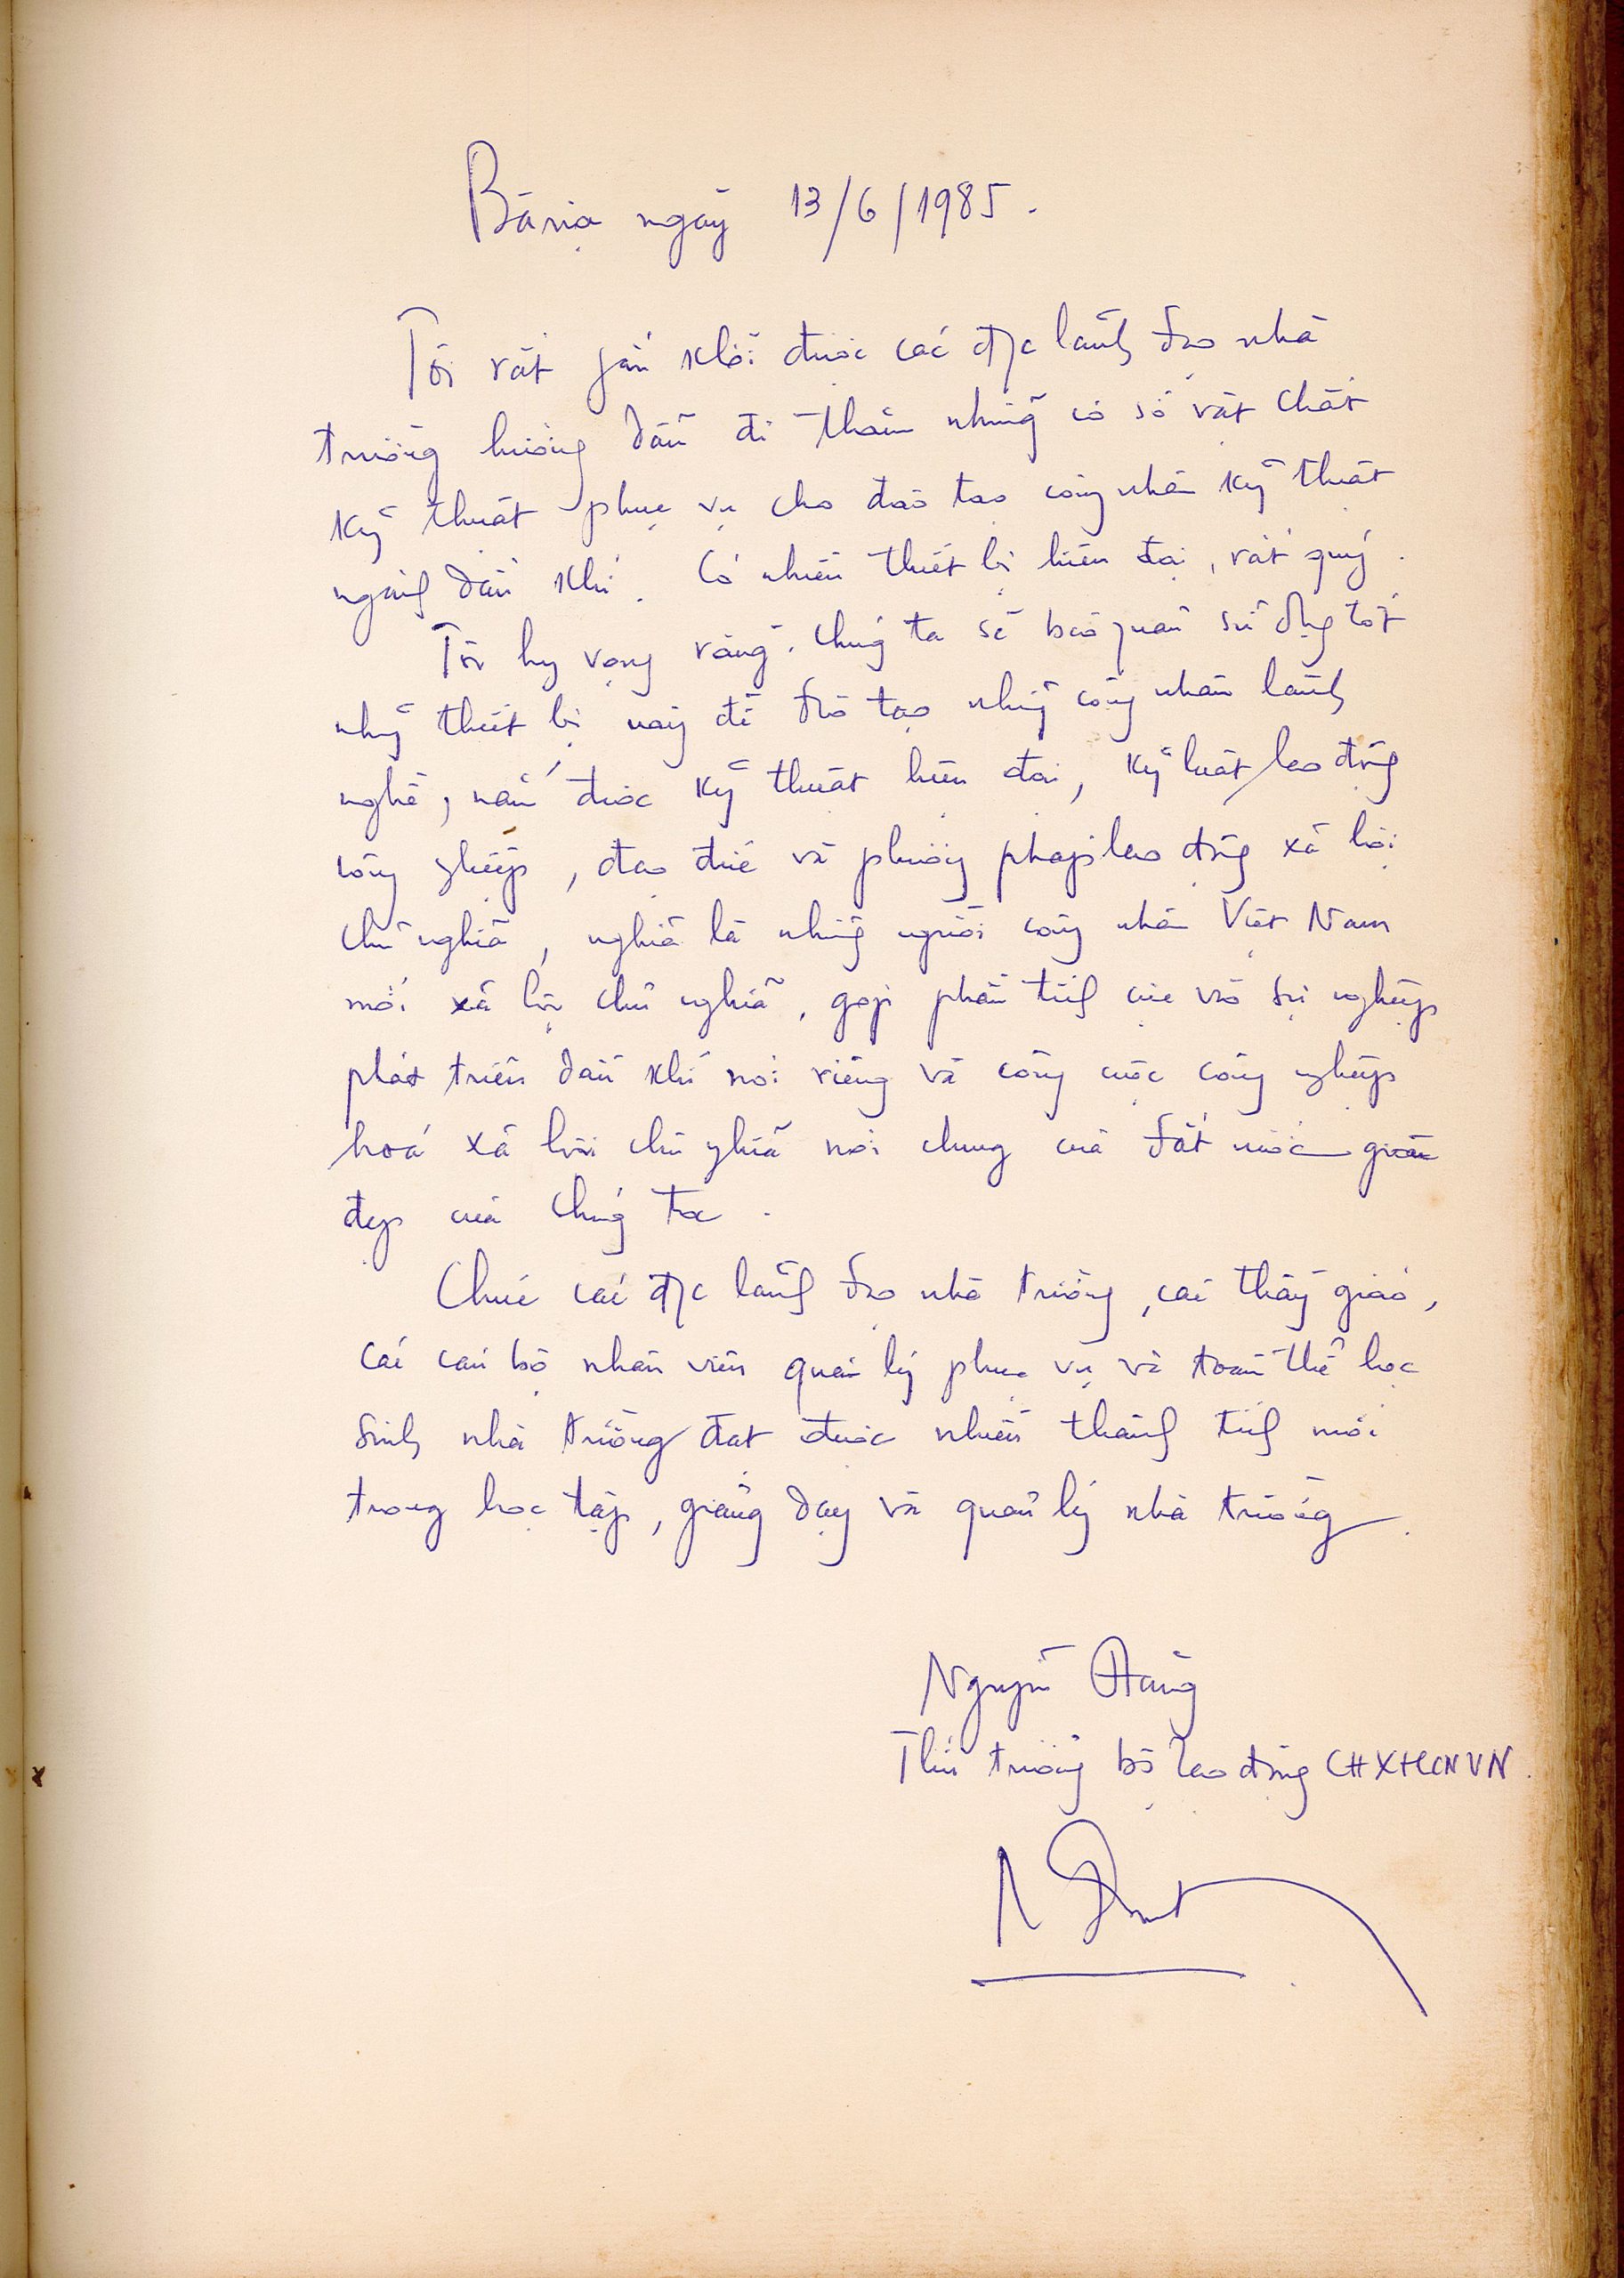 Bà rịa ngày 13/6/1985.
Tôi rất phấn khởi được các đ/c lãnh đạo nhà
trường hướng dẫn đi thăm những cơ sở vật chất
kỹ thuật phục vụ cho đào tạo công nhân kỹ thuật
ngành dầu khí. Có nhiều thiết bị hiện đại, rất quý.
Tôi hy vọng rằng. Chúng ta sẽ bảo quản sử dụng tốt
những thiết bị này để đào tạo những công nhân lành
nghề, nắm được kỹ thuật hiện đại, kỷ luật lao động
công nghiệp, đạo đức và phương pháp lao động xã hội
chủ nghĩa, nghĩa là những người công nhân Việt Nam
mới xã hội chủ nghĩa, góp phần tích cực vào sự nghiệp
phát triển dầu khí nói riêng và công cuộc công nghiệp
hoá xã hội chủ nghĩa nói chung của đất nước giàu
đẹp của chúng ta.
Chúc các đ/c lãnh đạo nhà trường, các thầy giáo,
các cán bộ nhân viên quản lý phục vụ và toàn thể học
sinh nhà trường đạt được nhiều thành tích mới
trong học tập, giảng dạy và quản lý nhà trường.
Nguyễn
Thứ trưởng bộ lao động CHXHCNVN.